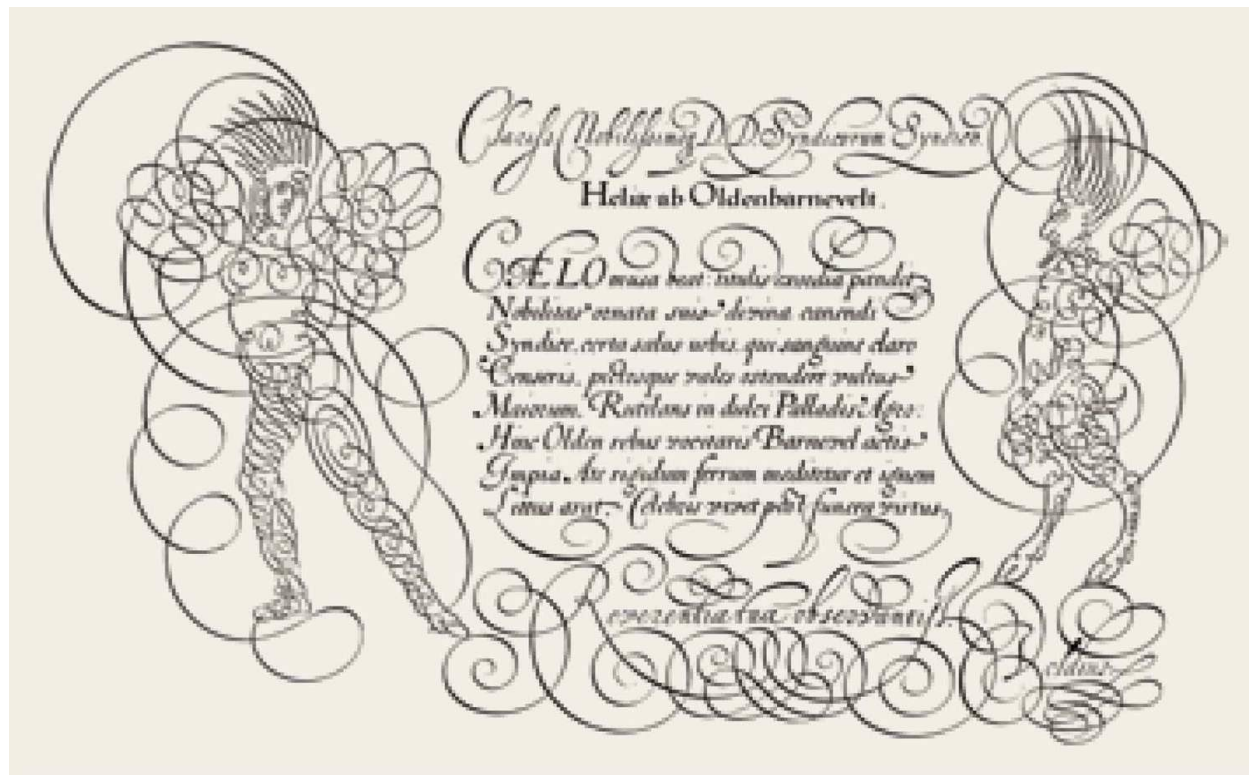 Clariss. Nobilissimoq D. D. Syndicorum Syndico
Heliæ ab Oldenbarnevelt.
CÆLO musa beat: titulis pandit
Nobilitas ornata suis divina canendi
Syndice, certa salus urbis, qui sanguine claro
Censeris, pictosque vales ostendere vultus
Maiorum. Rutilans in dulci Palladis Agro:
Hinc Olden rebus vocitaris Barnevel actis
Impia Ars rigidum ferrum meditetur et ignem
Littus arat Celebris vivet post funera virtus.
Reverentiæ tuæ observantiss.